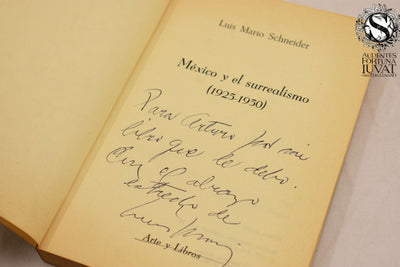 Luis Mario Schneider
México y el surrealismo
(1925-1950)
Para Arturo por mi
libro que le debo.
Con el abrazo
estrecho de
Luis Mario
Arte y Libros
S
AUDENTES
FORTUNA
IUVAT